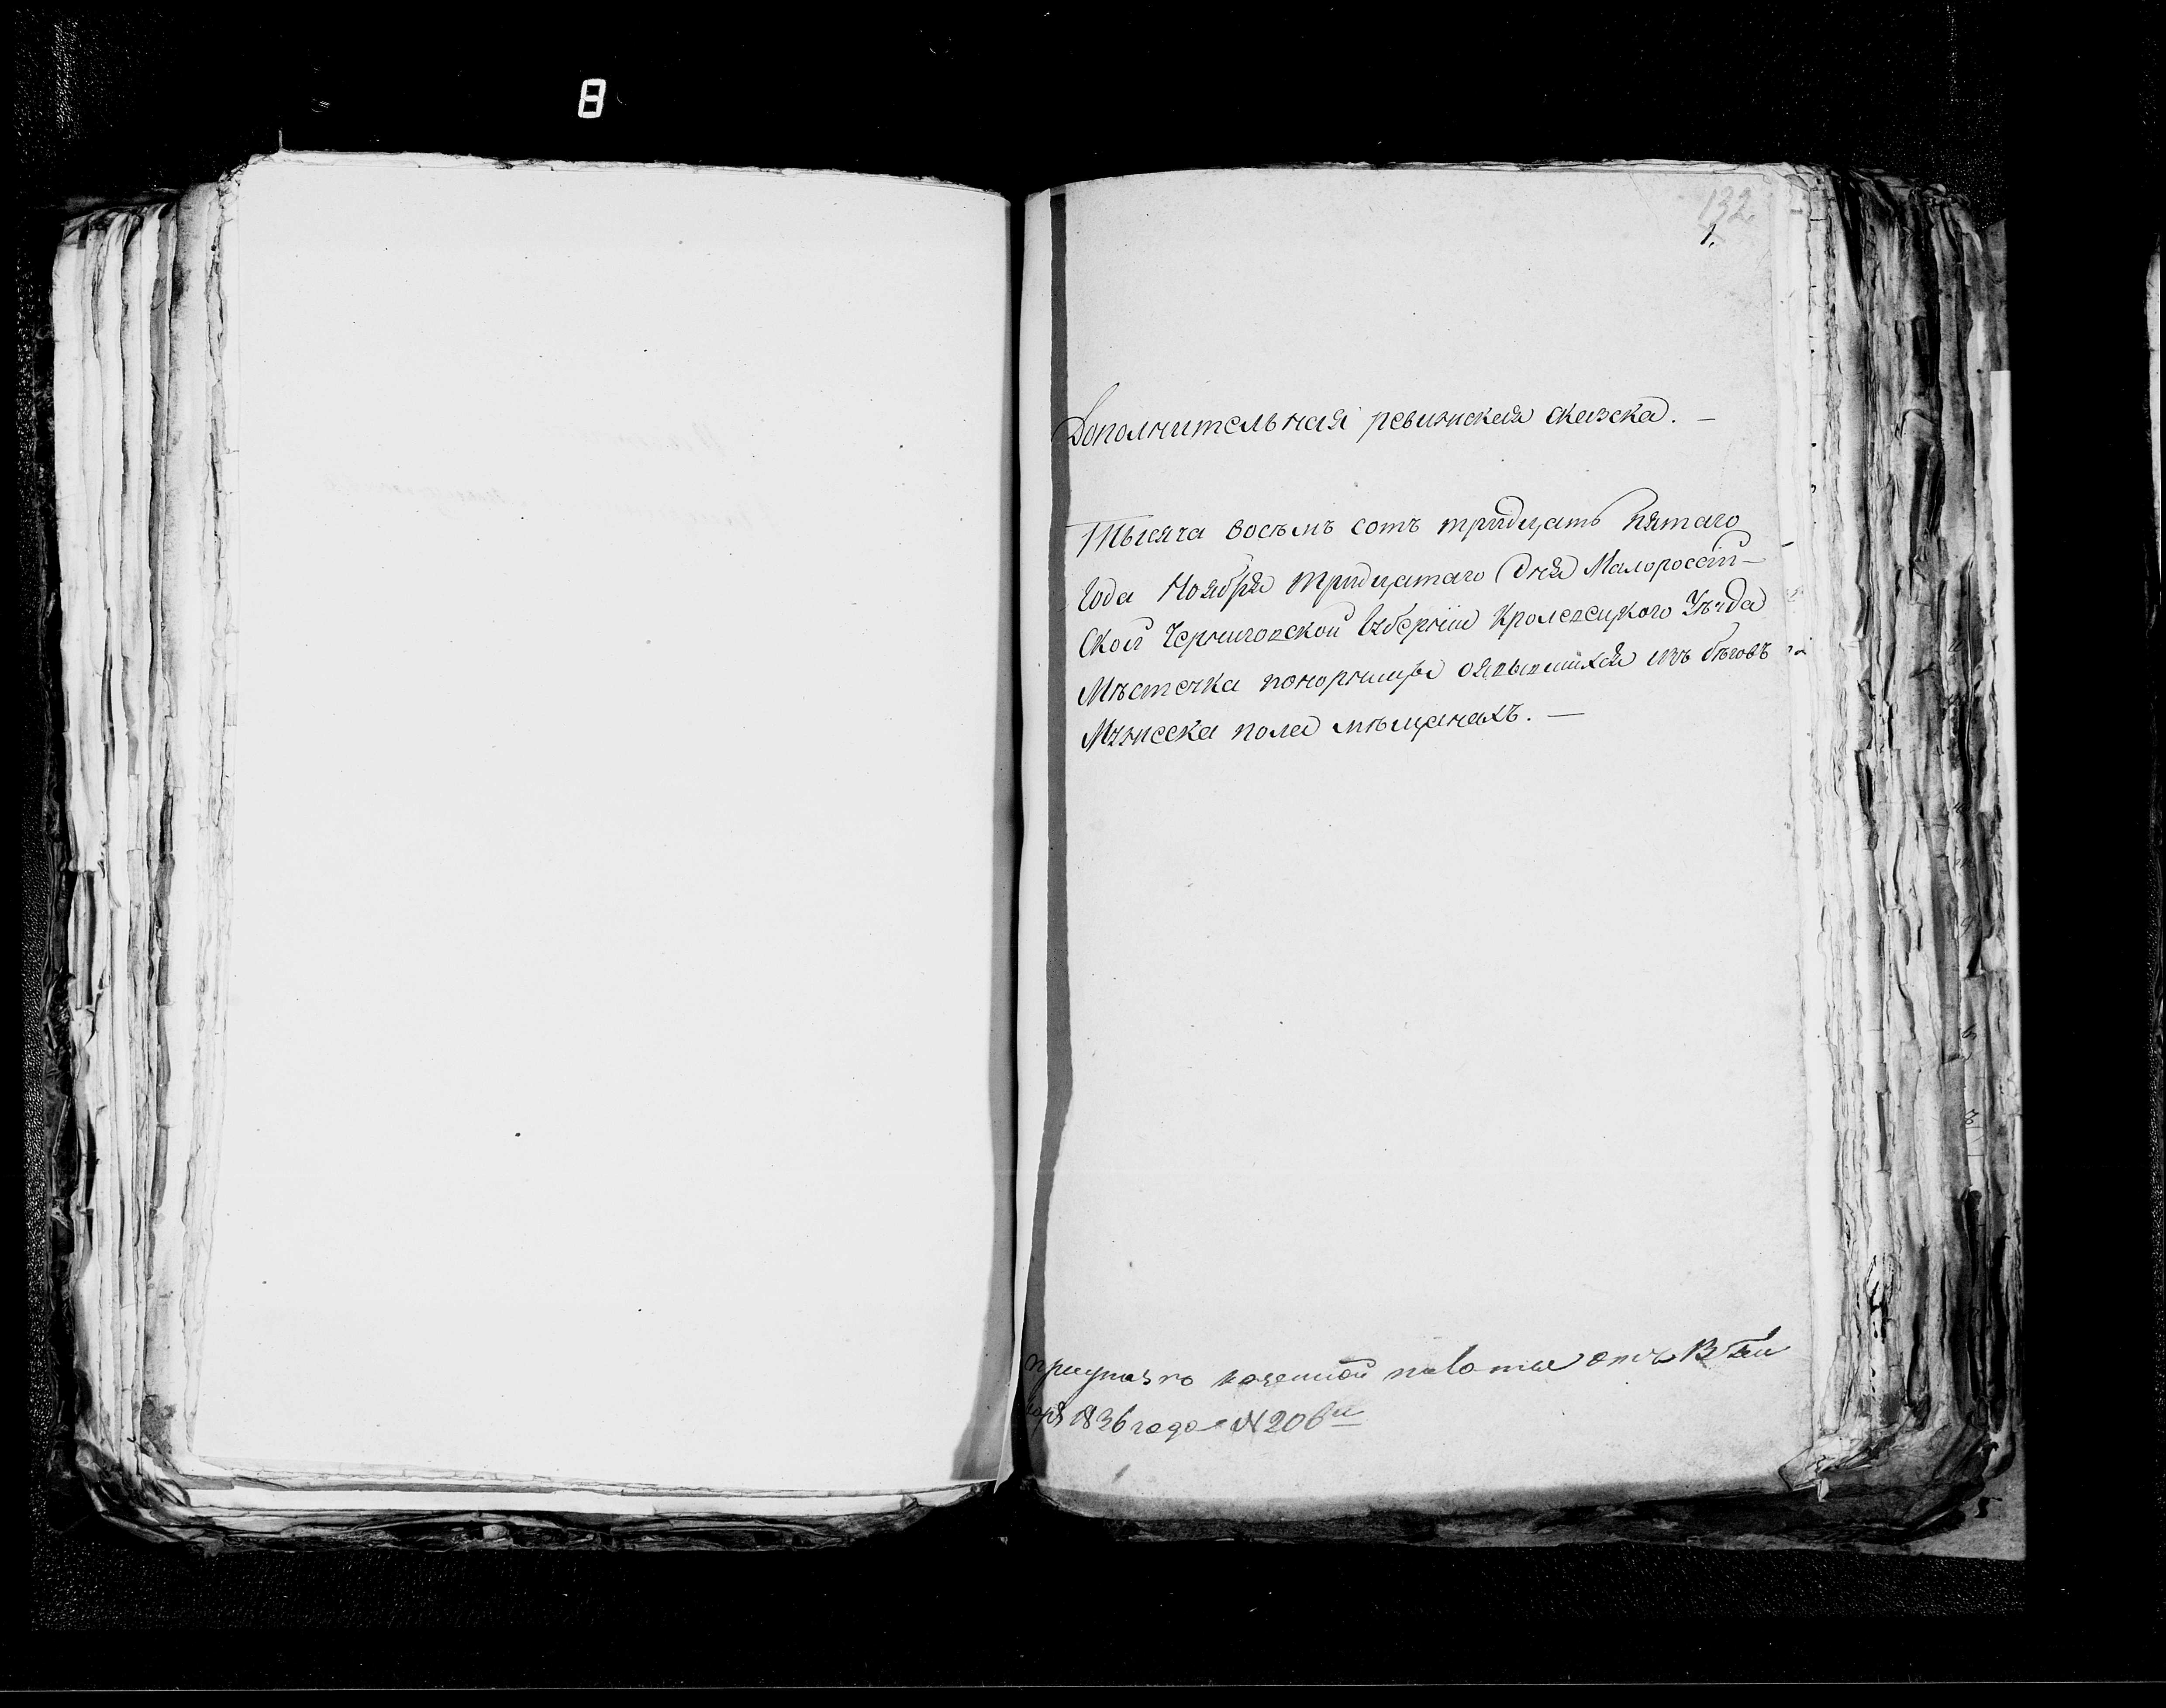 8
132.
1.
Дополнительная ревизская сказка. —
Тысяча восемь сотъ тридцать пятаго
года Ноября тридцатаго дня Малороссій-
ской Черниговской Губерніи Кролевецкого Уѣзда
Мѣстечка понорницы оявывшихся изъ бѣговъ
Мужеска пола мѣщанахъ. —
При указѣ казенной палаты отъ 13 Ген
варя 1836 года N 206